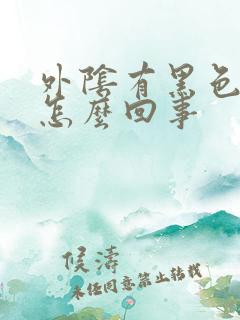 外陰有黑色
怎麼回事
侯濤
未经同意禁止转载